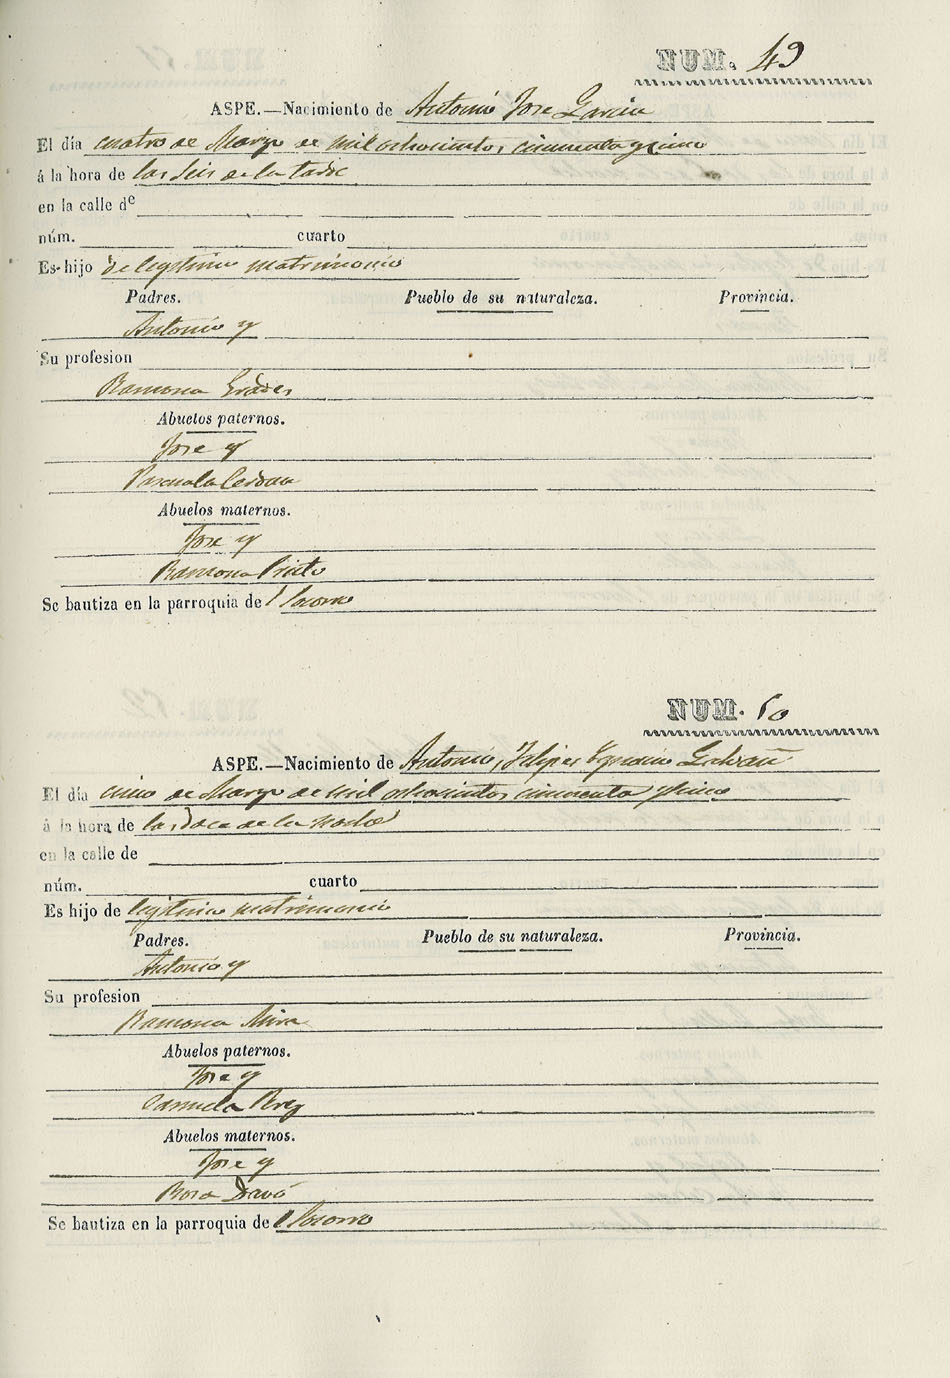 NUM. 49
ASPE.—Nacimiento de Antonio Jose Garcia
El día cuatro de Marzo de mil ochocientos cincuenta y cinco
á la hora de las seis de la tarde
en la calle de
núm. cuarto
Es hijo de legitimo matrimonio
Padres. Pueblo de su naturaleza. Provincia.
Antonio y
Su profesion
Ramona
Abuelos paternos.
Jose y
Pascuala Cerdan
Abuelos maternos.
Jose y
Ramona Prieto
Se bautiza en la parroquia de l Socorro
NUM. 50
ASPE.—Nacimiento de Antonio, Felipe Galvañ
El día cinco de Marzo de mil ochocientos cincuenta y cinco
á la hora de las doce de la noche
en la calle de
núm. cuarto
Es hijo de legitimo matrimonio
Padres. Pueblo de su naturaleza. Provincia.
Antonio y
Su profesion
Ramona Mira
Abuelos paternos.
Jose y
Manuela
Abuelos maternos.
Jose y
Rosa Davó
Se bautiza en la parroquia de l Socorro